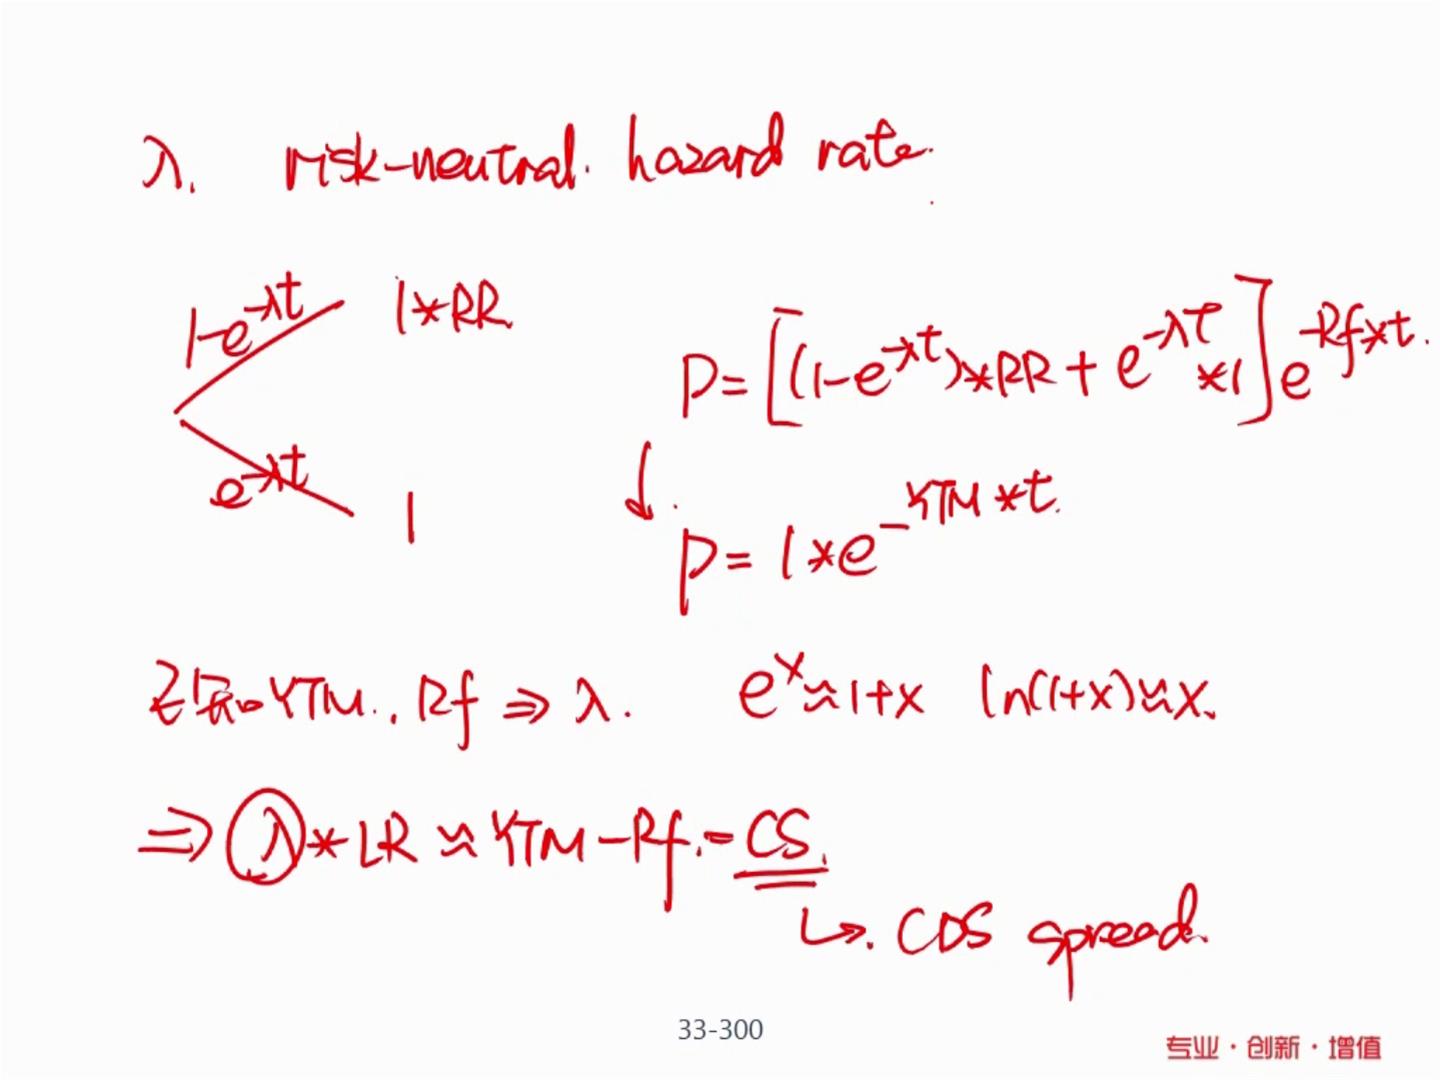 λ. risk-neutral. hazard rate.
1-e^-λt 1*RR
P=[(1-e^-λt)*RR+e^-λt*1]e^-Rf*t.
e^-λt 1
↓.
P=1*e^-YTM*t.
已知YTM., Rf⇒λ. e^x≈1+x ln(1+x)≈x.
⇒λ*LR≈YTM-Rf.=CS.
↳. CDS spread.
33-300
专业·创新·增值